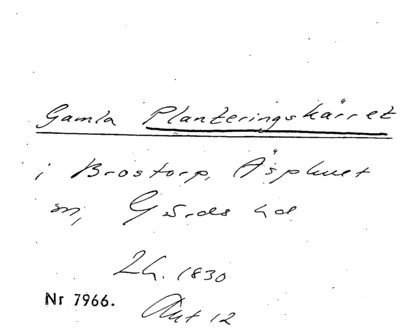 Gamla Planteringskärret
i Brostorp, Äsphult
sn, Gärds hd
Lh. 1830
Nr 7966.
Akt 12